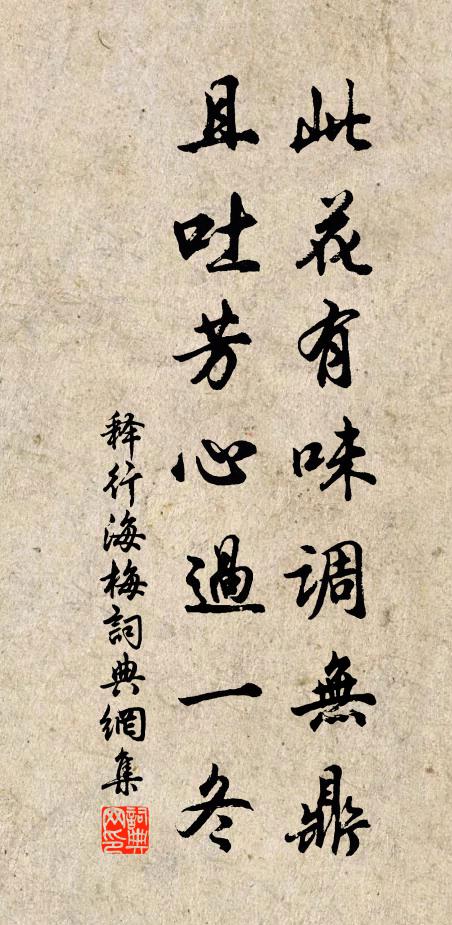 此花有味调無鼎
且吐芳心過一冬
释行海梅詞典網集
詞典网印